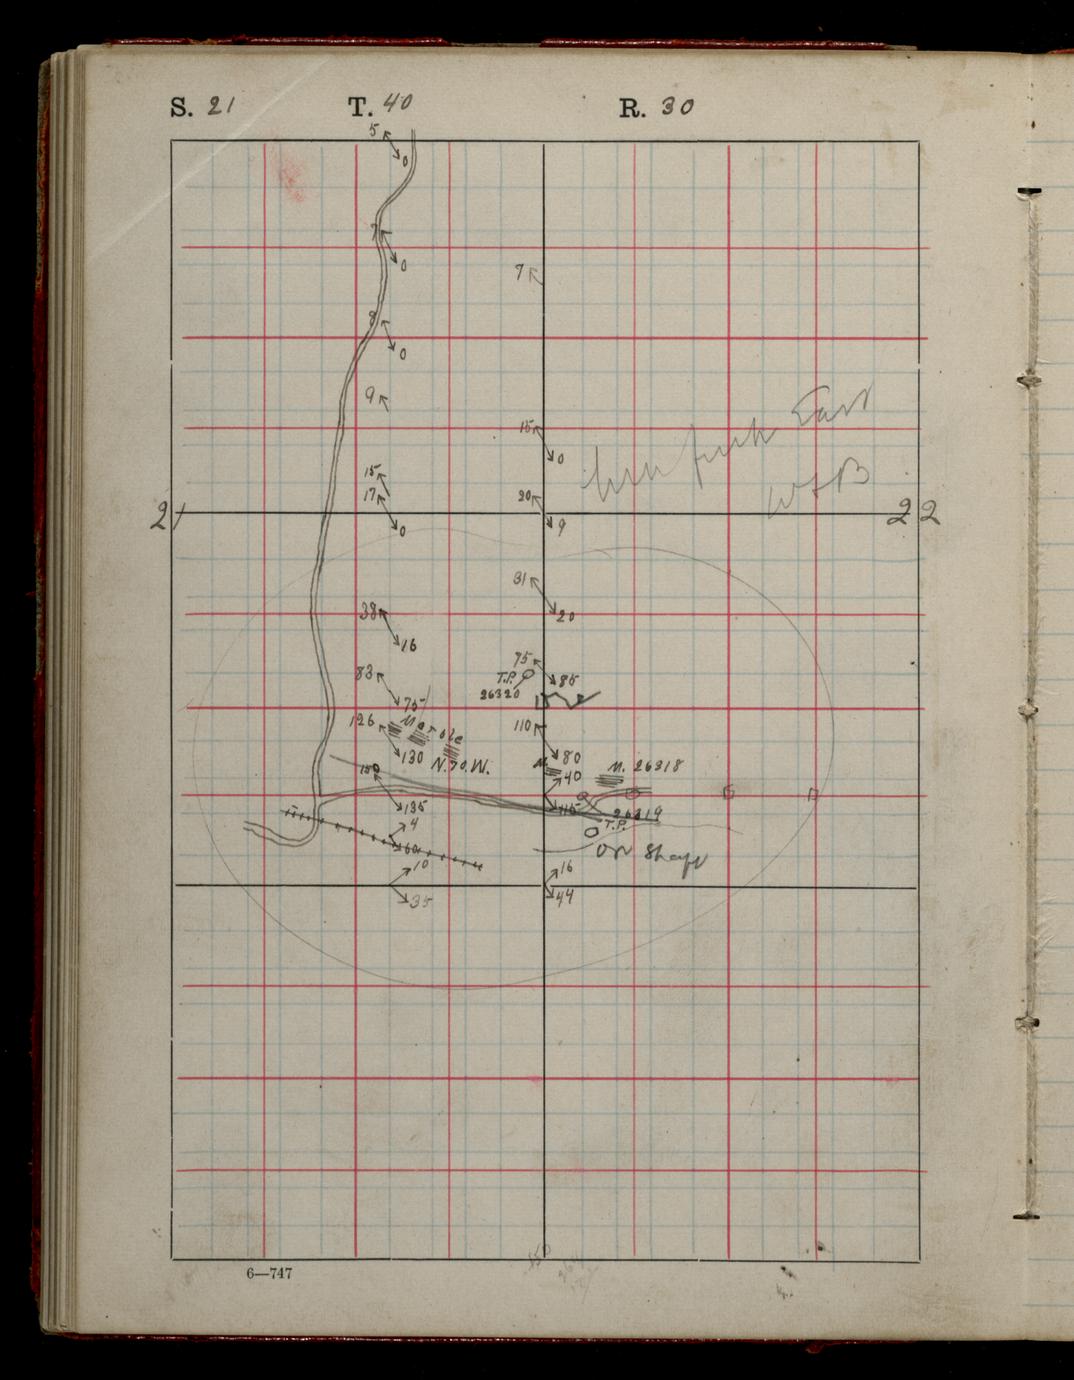 S. 21 T. 40 R. 30
5
0
7
0
7
8
0
9
15
0
East
W+B
15
17
20
21
0
9
22
31
20
38
16
75
83
T.P.
85
26320
75
126
Marble
110
130
N.70.W.
80
M.
40
M. 26318
150
135
115
26319
4
T.P.
60
Ore Shaft
10
16
35
44
6—747